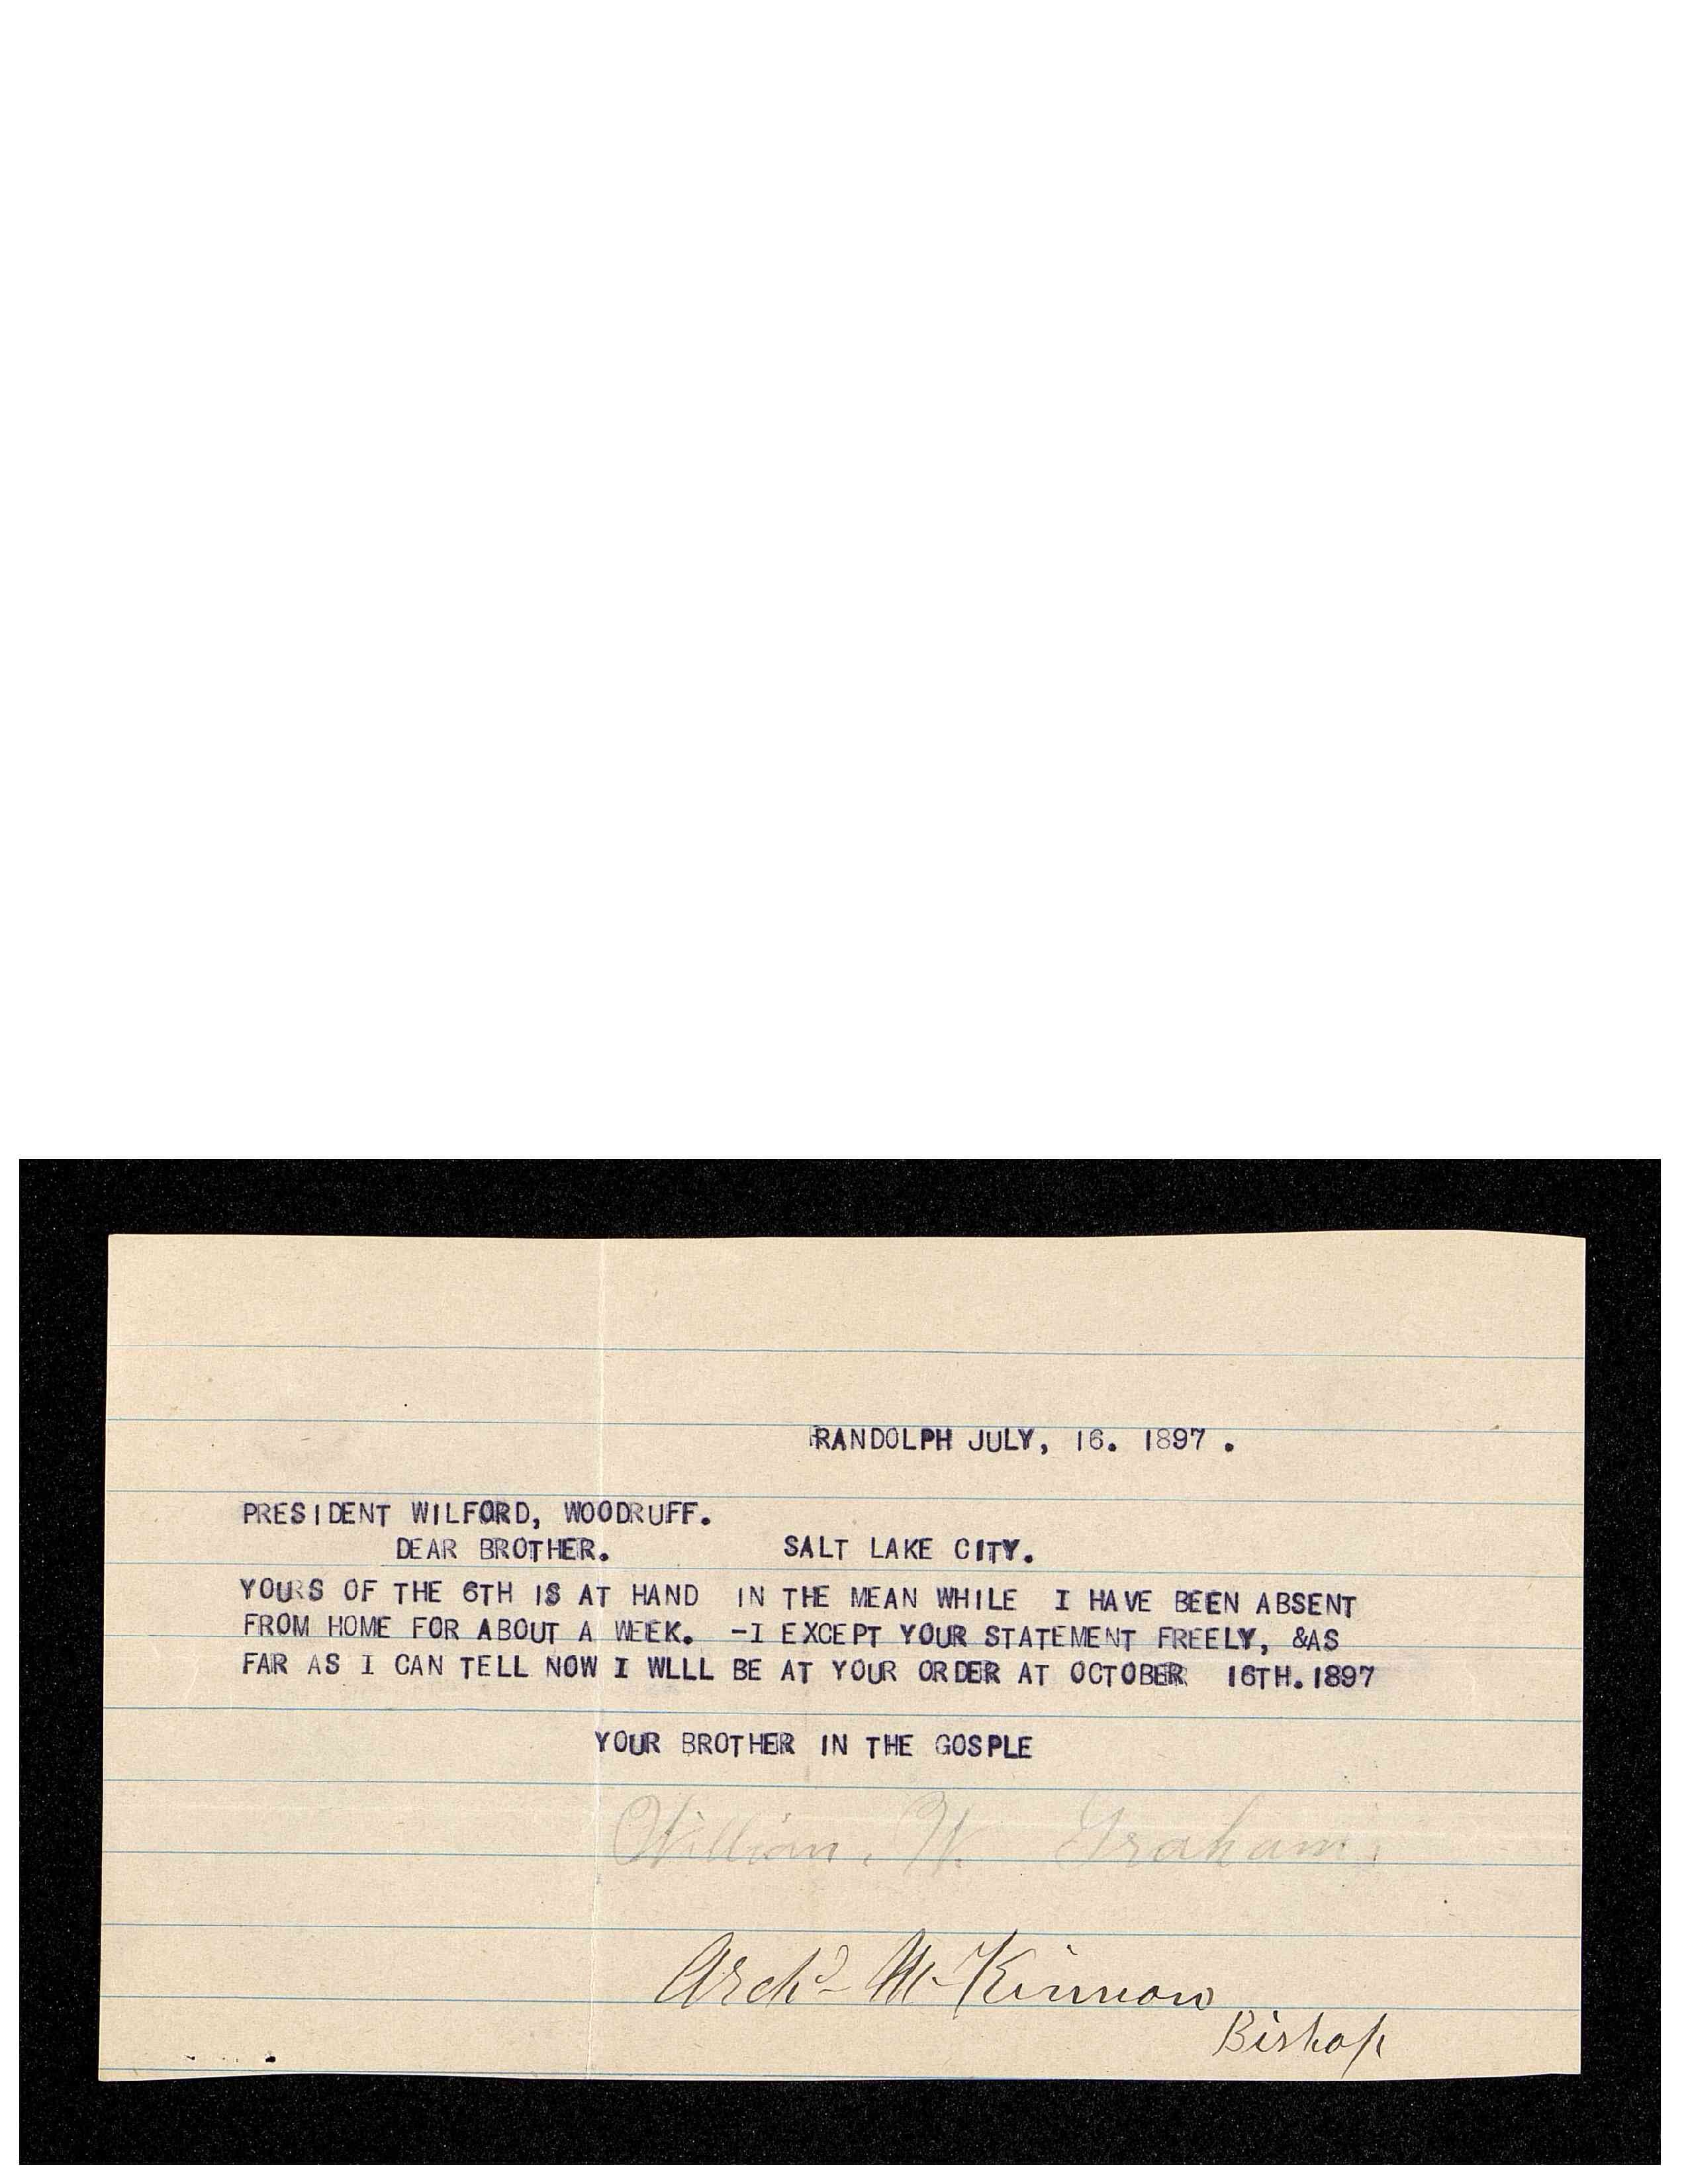 RANDOLPH JULY, 16. 1897 .
PRESIDENT WILFORD, WOODRUFF.
DEAR BROTHER. SALT LAKE CITY.
YOURS OF THE 6TH IS AT HAND IN THE MEAN WHILE I HAVE BEEN ABSENT
FROM HOME FOR ABOUT A WEEK. -I EXCEPT YOUR STATEMENT FREELY, &AS
FAR AS I CAN TELL NOW I WLLL BE AT YOUR ORDER AT OCTOBER 16TH.1897
YOUR BROTHER IN THE GOSPLE
William. W. Graham.
Archd McKinnon
Bishop